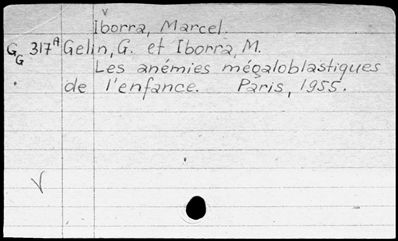 Iborra, Marcel.
GG 317A Gelin, G. et Iborra, M.
Les anémies mégaloblastiques
de l'enfance. Paris, 1955.